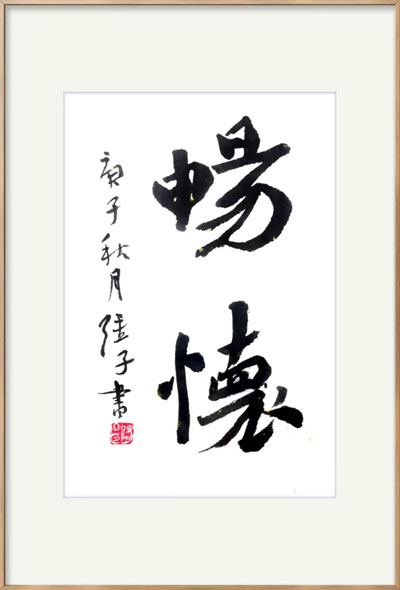 暢懷
庚子秋月強子書